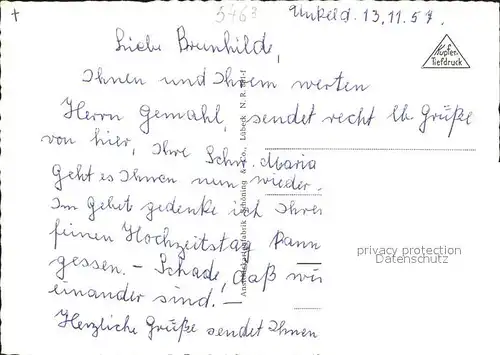 5463
Unkel d. 13.11.57.
Kupfer-
Tiefdruck
Liebe Brunhilde,
Ihnen und Ihrem werten
Herrn Gemahl, sendet recht lb Grüße
von hier, Ihre Schw. Maria
Geht es Ihnen nun wieder.
Im Gebet gedenke ich Ihrer
feinen Hochzeitstag kann
gessen. – Schade, daß wir
einander sind. –
Herzliche Grüße sendet Ihnen
Schöning & Co., Lübeck N. R.
privacy protection
Datenschutz